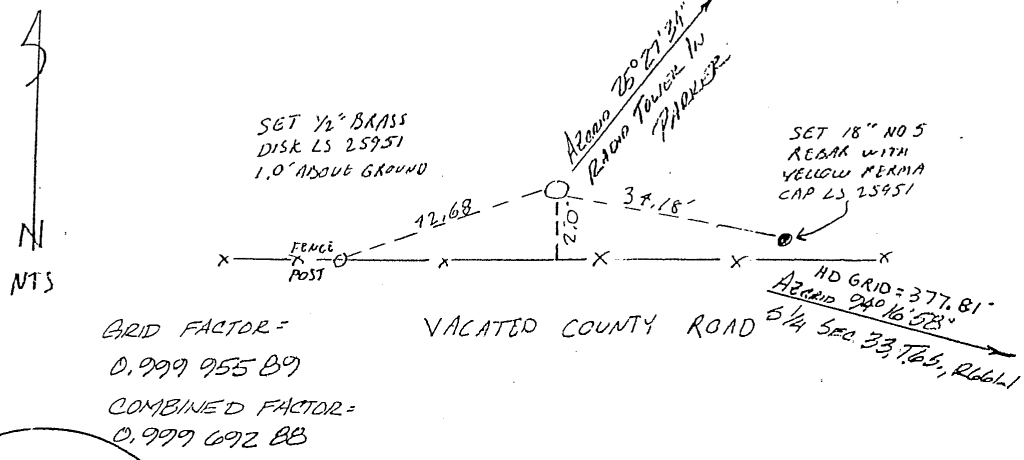 N
NTS
SET 1/2" BRASS
DISK LS 25951
1.0' ABOVE GROUND
AZGRID 25° 27' 34"
RADIO TOWER IN
PARKER
SET 18" NO 5
REBAR WITH
YELLOW PERMA
CAP LS 25951
12.68
2.0'
37.18'
FENCE
POST
HD GRID = 377.81'
AZGRID 94° 16' 58"
S 1/4 SEC. 33, T.6S.,
GRID FACTOR =
0.999 955 89
VACATED COUNTY ROAD
COMBINED FACTOR =
0.999 692 88